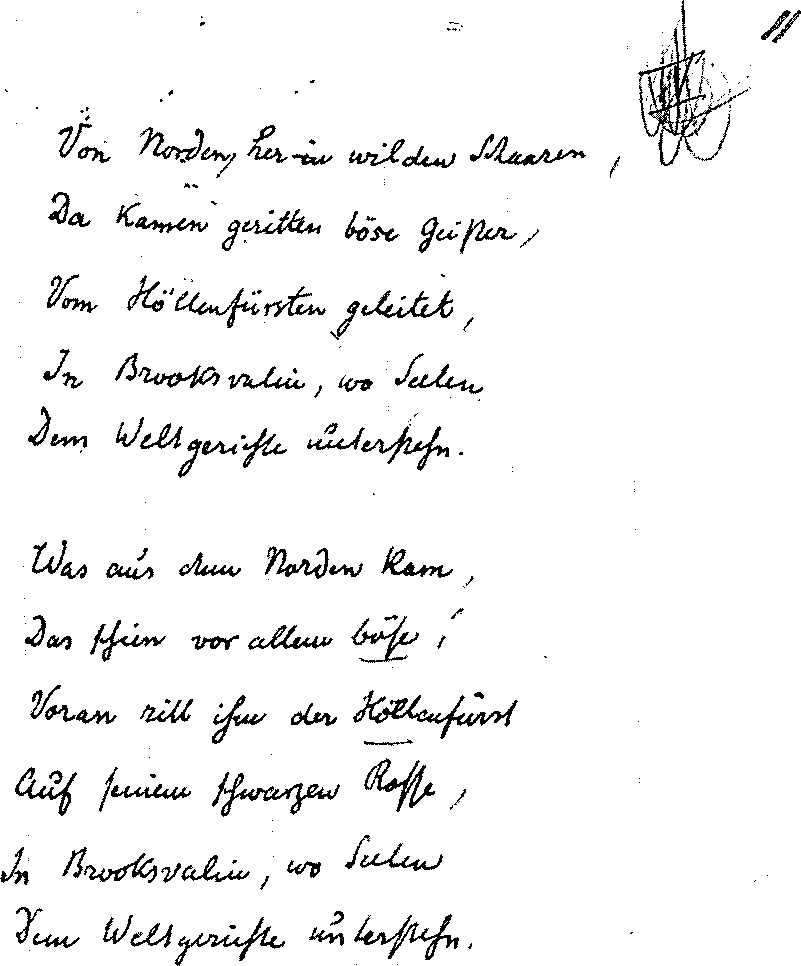 11
Von Norden, her in wilden Schaaren,
Da kamen geritten böse Geister,
Vom Höllenfürsten geleitet,
In Brooksvalin, wo Seelen
Dem Weltgerichte unterstehn.
Was aus dem Norden kam,
Das schien vor allem böse!
Voran ritt ihm der Höllenfürst
Auf seinem schwarzen Rosse,
In Brooksvalin, wo Seelen
Dem Weltgerichte unterstehn.